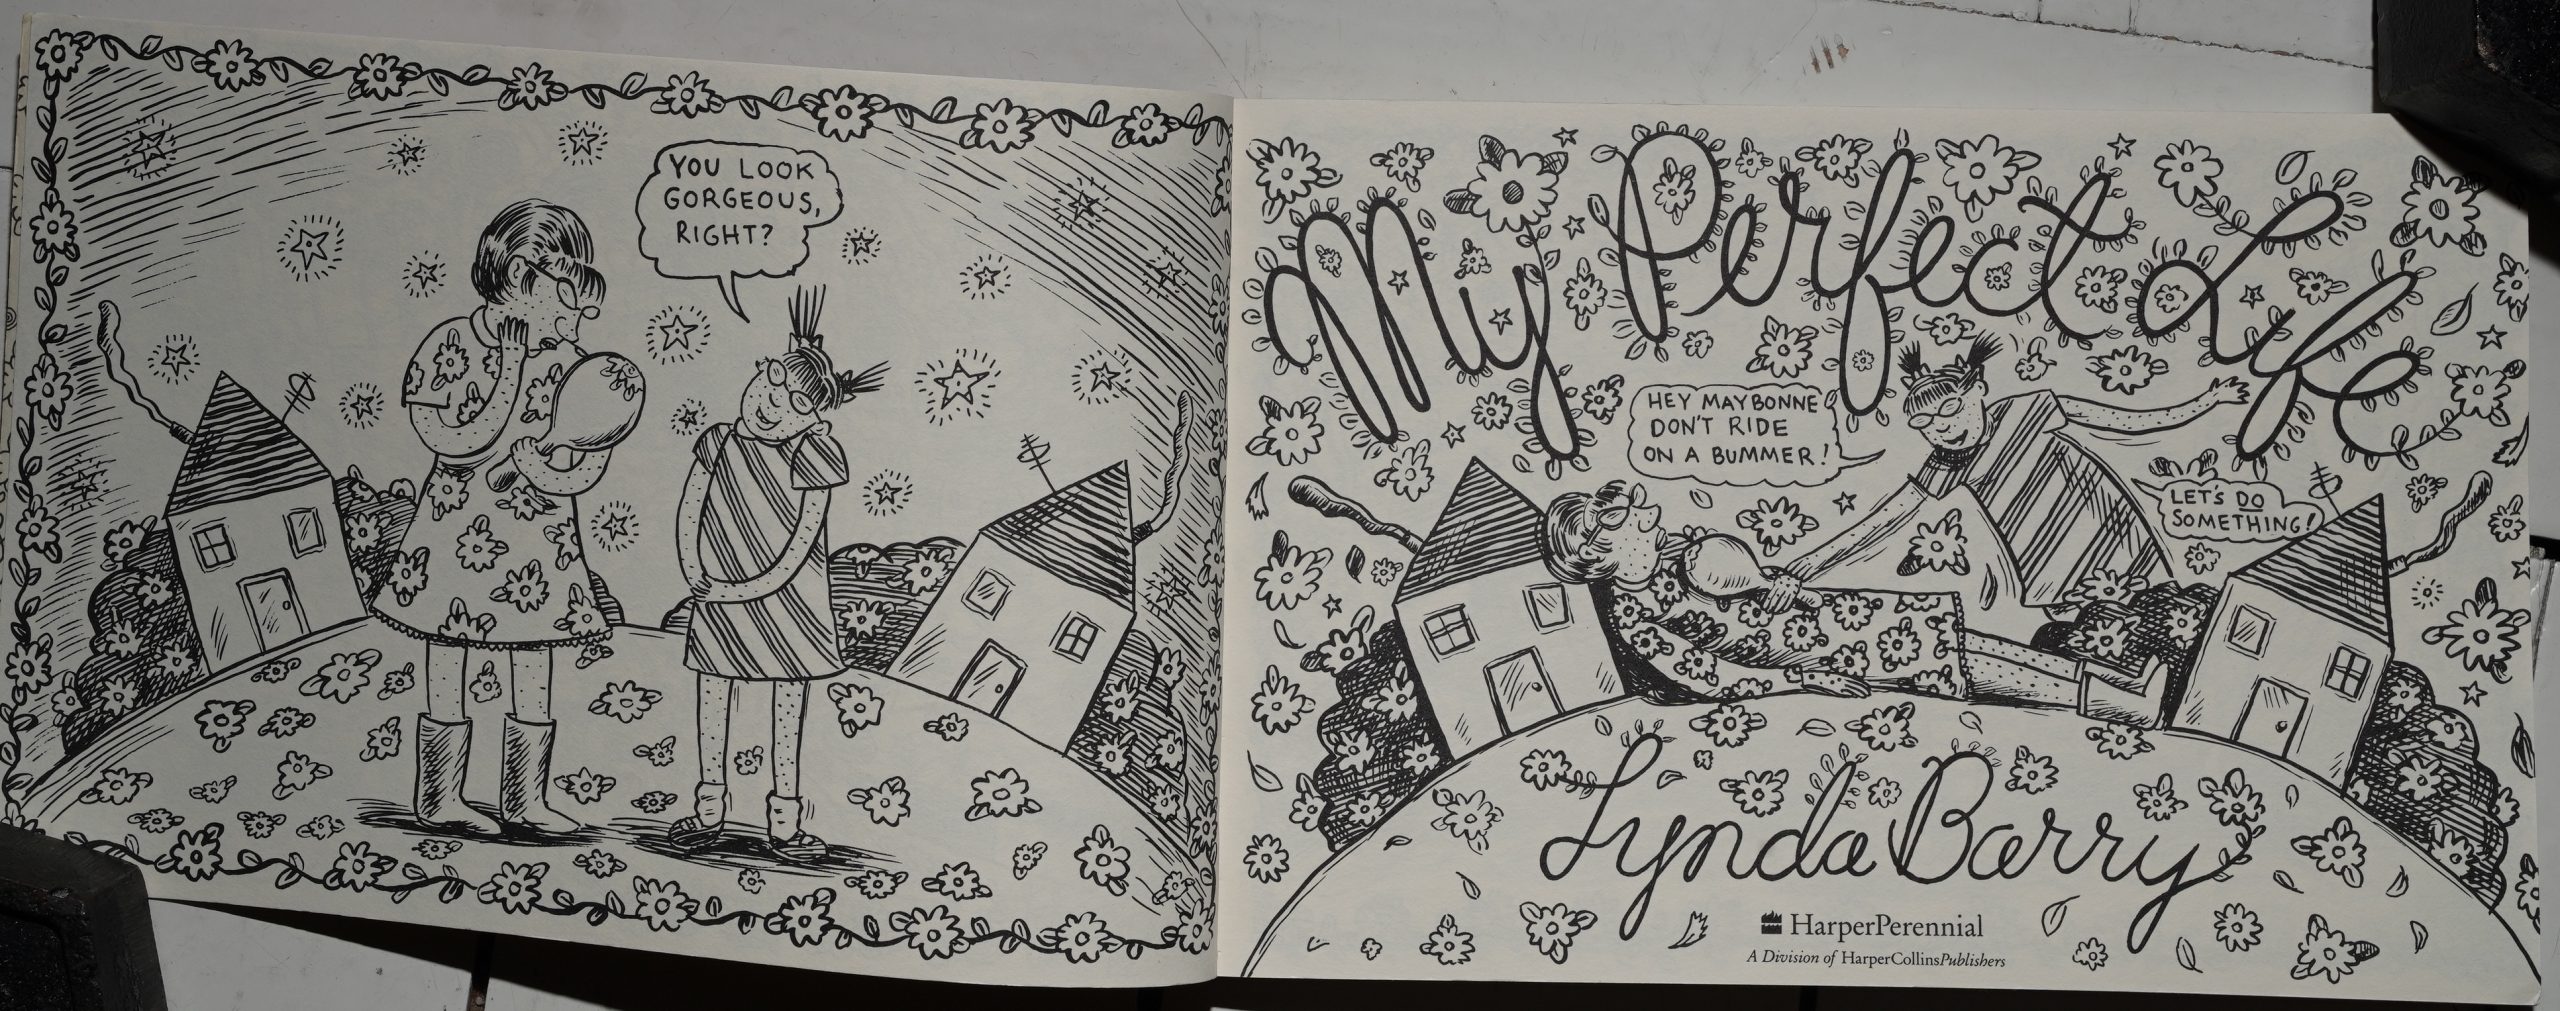 YOU LOOK
GORGEOUS,
RIGHT?
My Perfect Life
HEY MAYBONNE
DON'T RIDE
ON A BUMMER!
LET'S DO
SOMETHING!
Lynda Barry
HarperPerennial
A Division of HarperCollinsPublishers